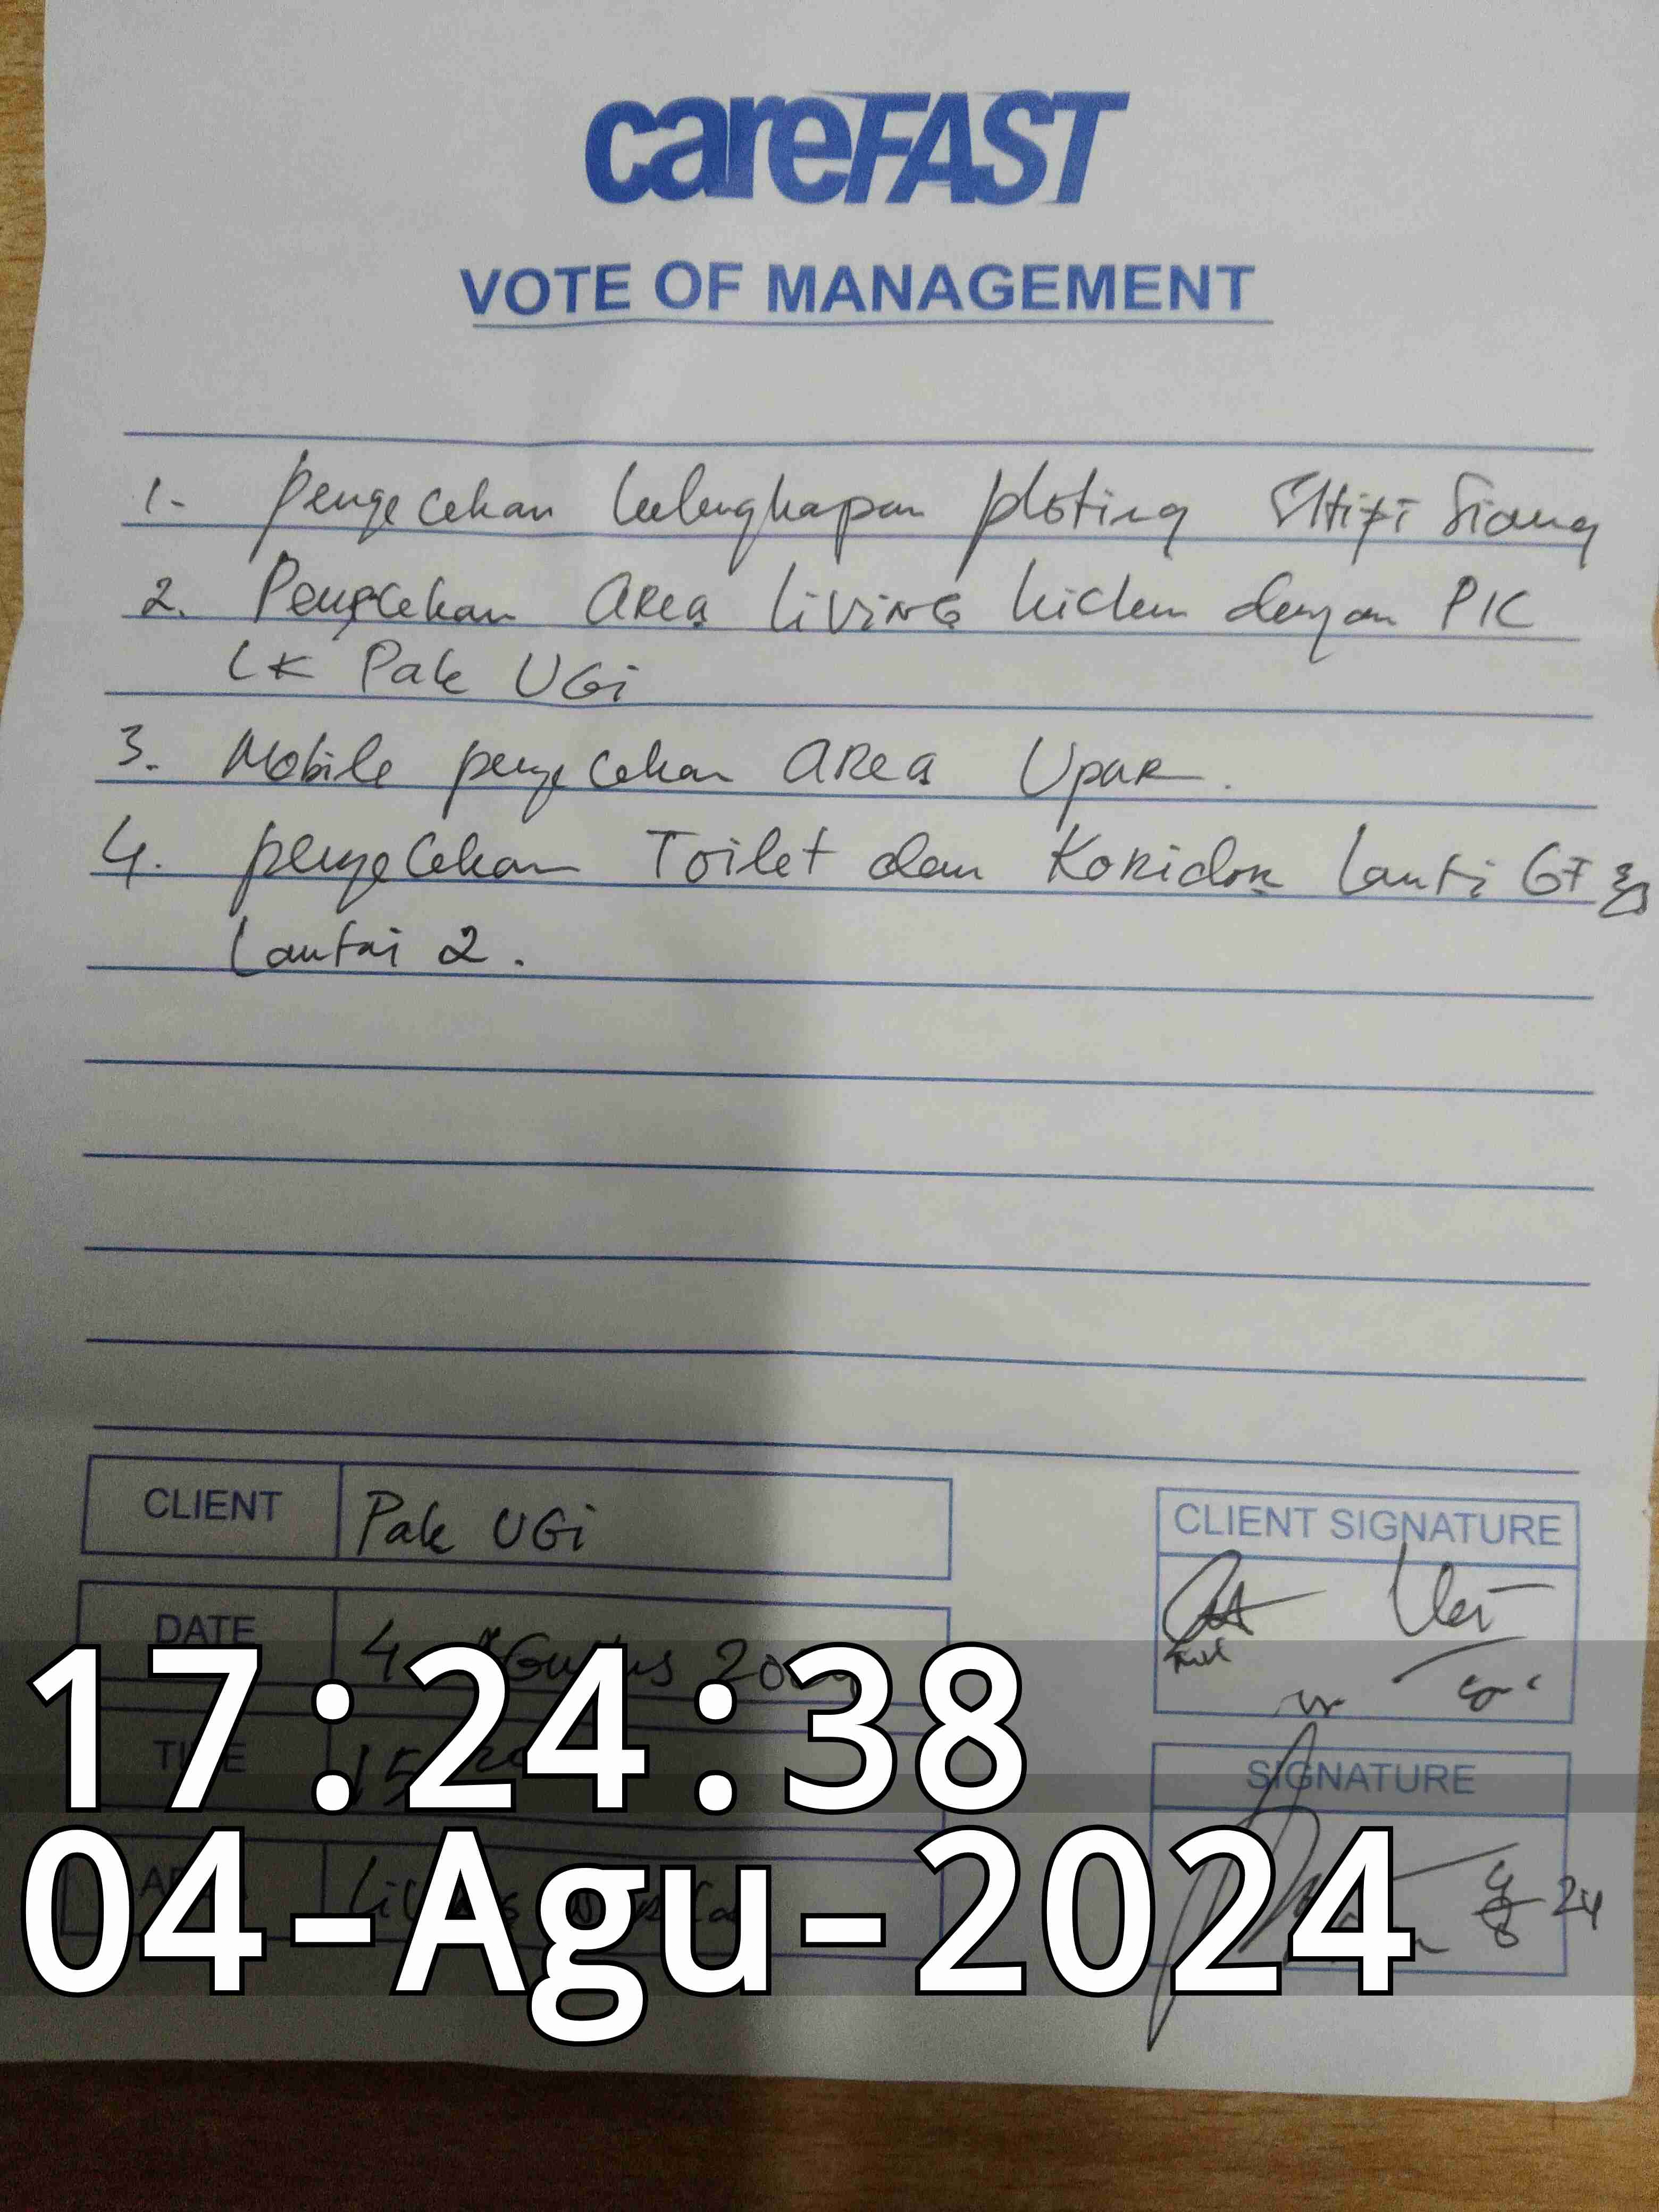 careFAST
VOTE OF MANAGEMENT
1. Pengecekan kelengkapan ploting Shift Siang
2. Pengecekan AREA LiViNG kicken dengan PIC
LK Pak UGi
3. Mobile pengecekan AREA Upar.
4. pengecekan Toilet dan KoRidoR Lanti GF
Lantai 2.
CLIENT Pak UGi
DATE 4 AGustus 2024
TIME 15
AREA
CLIENT SIGNATURE
SIGNATURE
24
17:24:38
04-Agu-2024